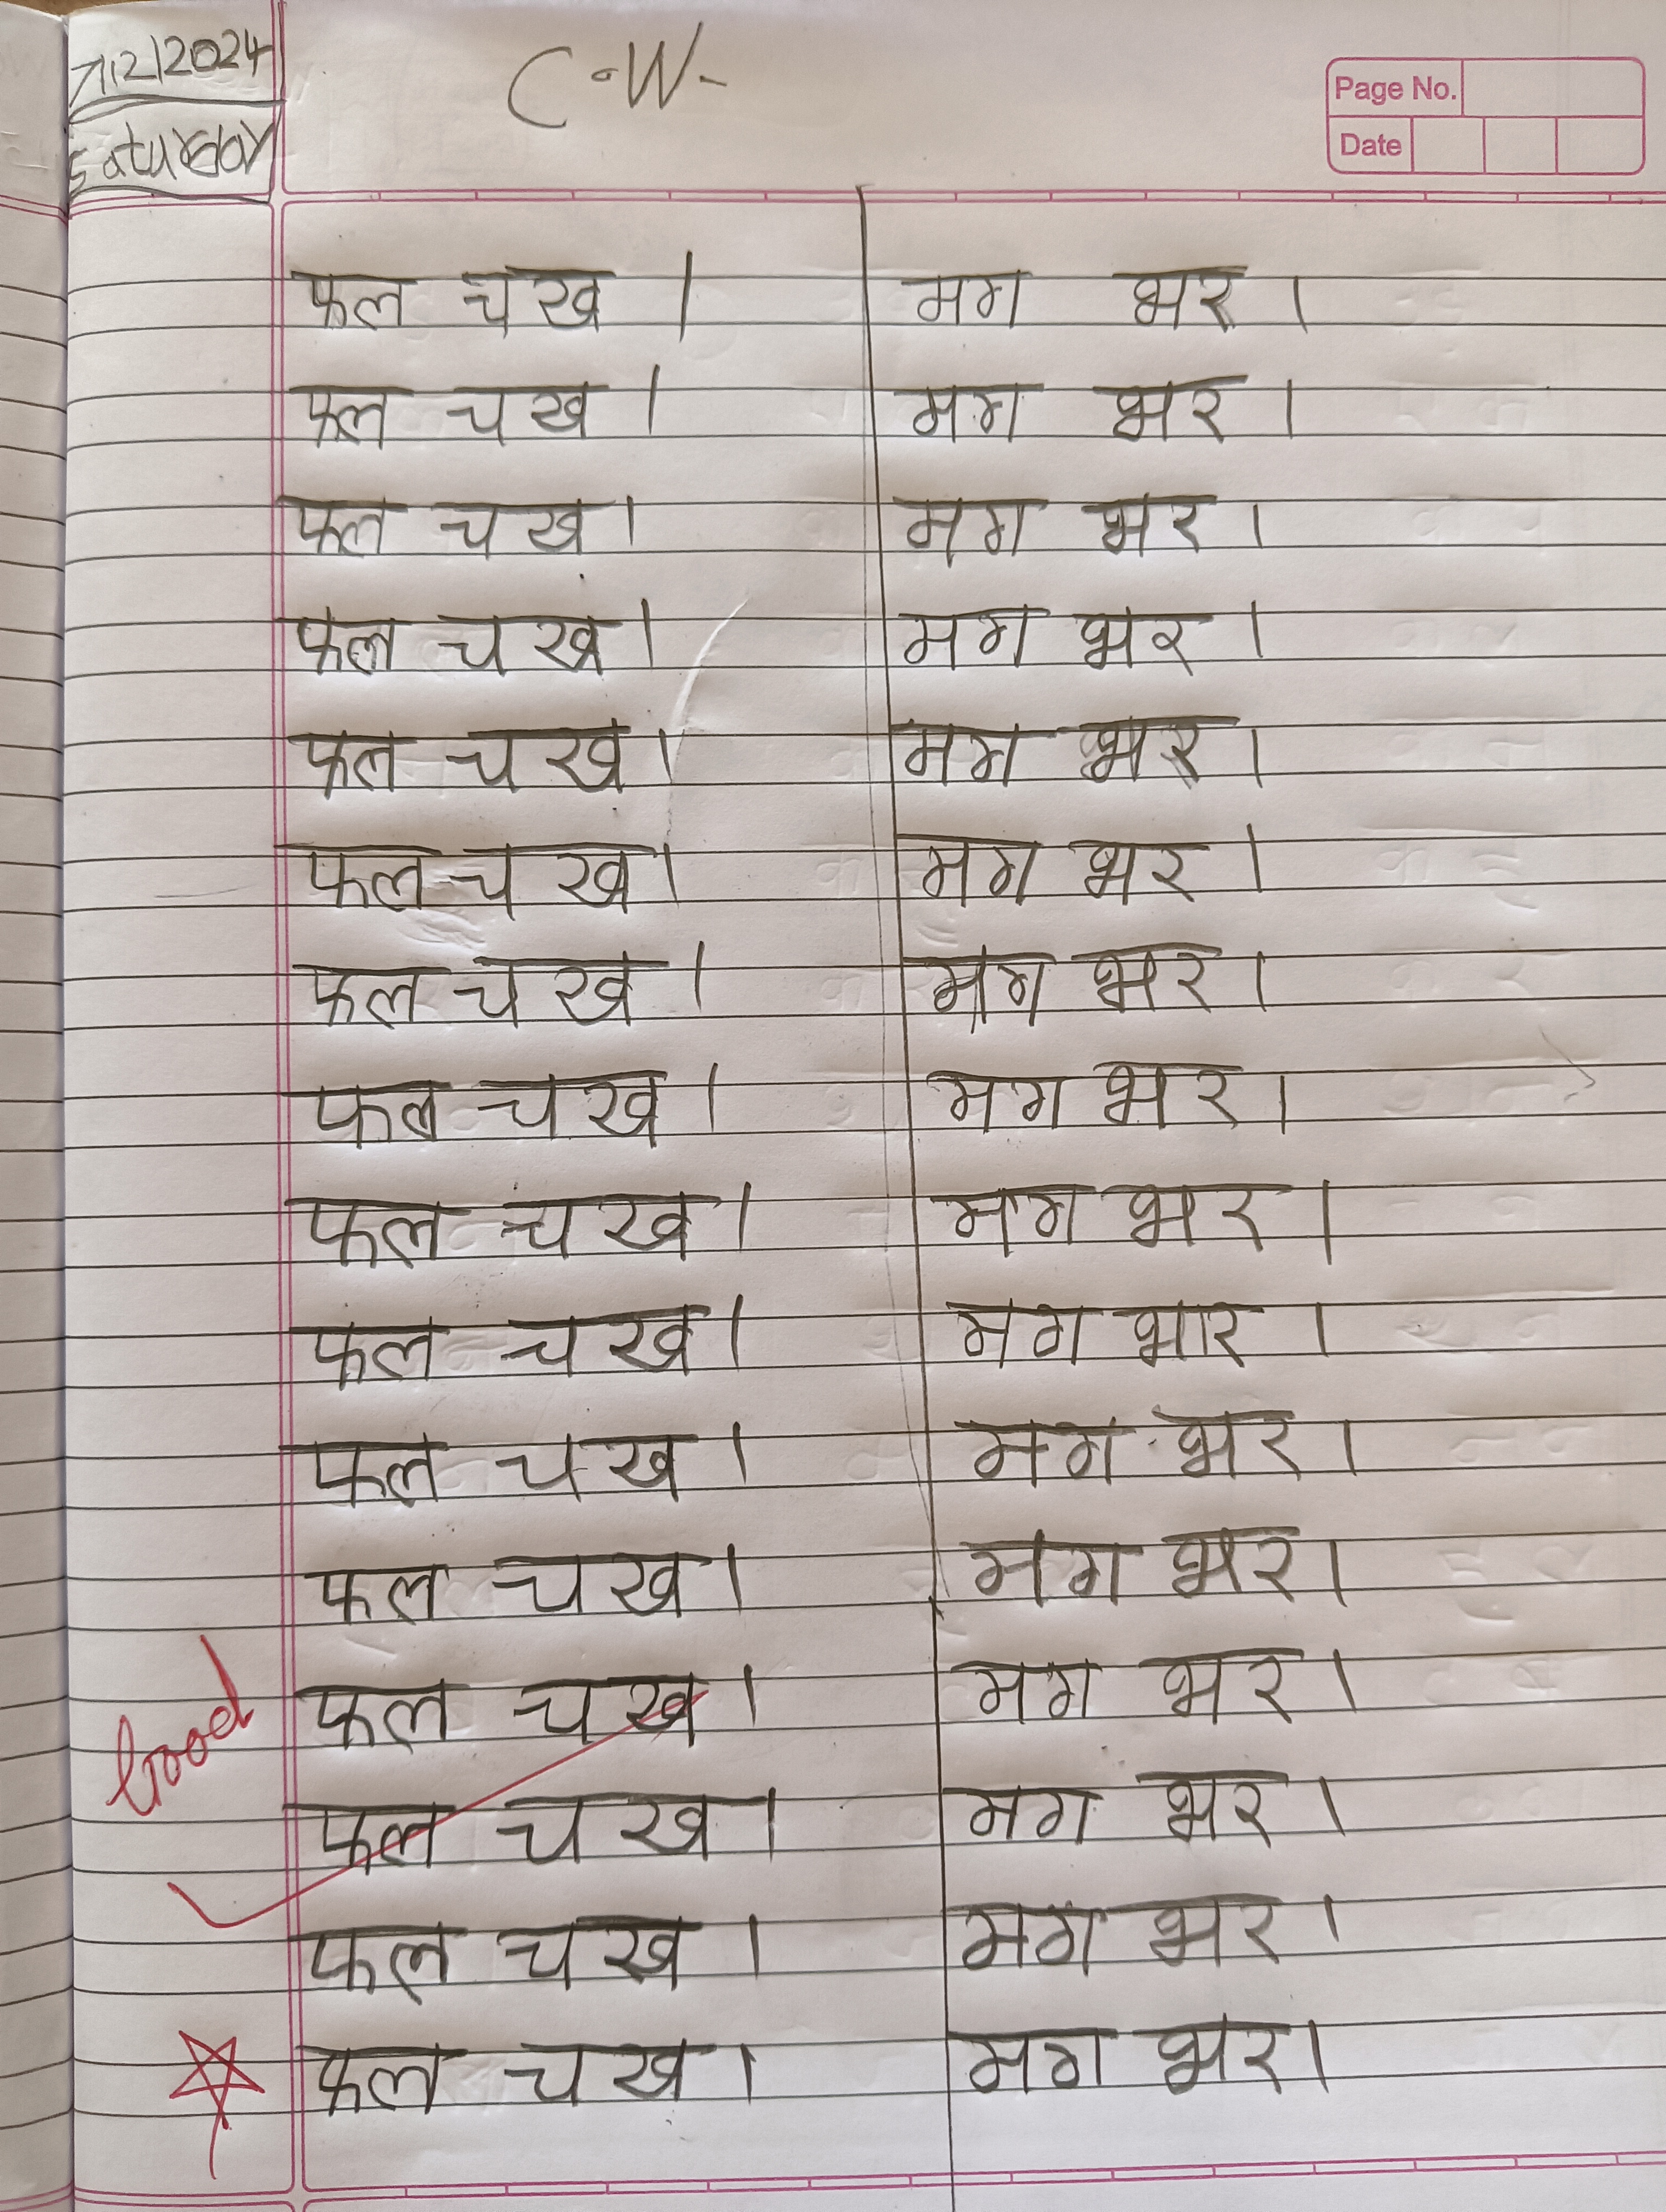 7/12/2024
C.W.
Page No.
Saturday
Date
फल चख । मग भर ।
फल चख । मग भर ।
फल चख । मग भर ।
फल चख । मग भर ।
फल चख । मग भर ।
फल चख । मग भर ।
फल चख । मग भर ।
फल चख । मग भर ।
फल चख । मग भर ।
फल चख । मग भार ।
फल चख । मग भर ।
फल चख । मग भर ।
Good
फल चख । मग भर ।
फल चख । मग भर ।
फल चख । मग भर ।
फल चख । मग भर ।